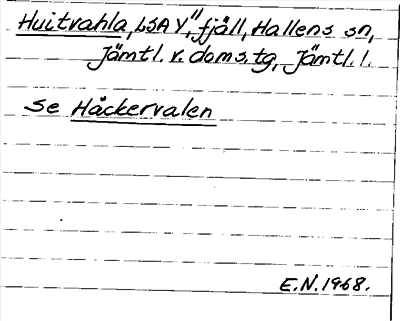 Huitvahla, LSA Y," fjäll, Hallens sn,
Jämtl. v. doms. tg, Jämtl. l.
Se Håckervalen
E.N. 1968.